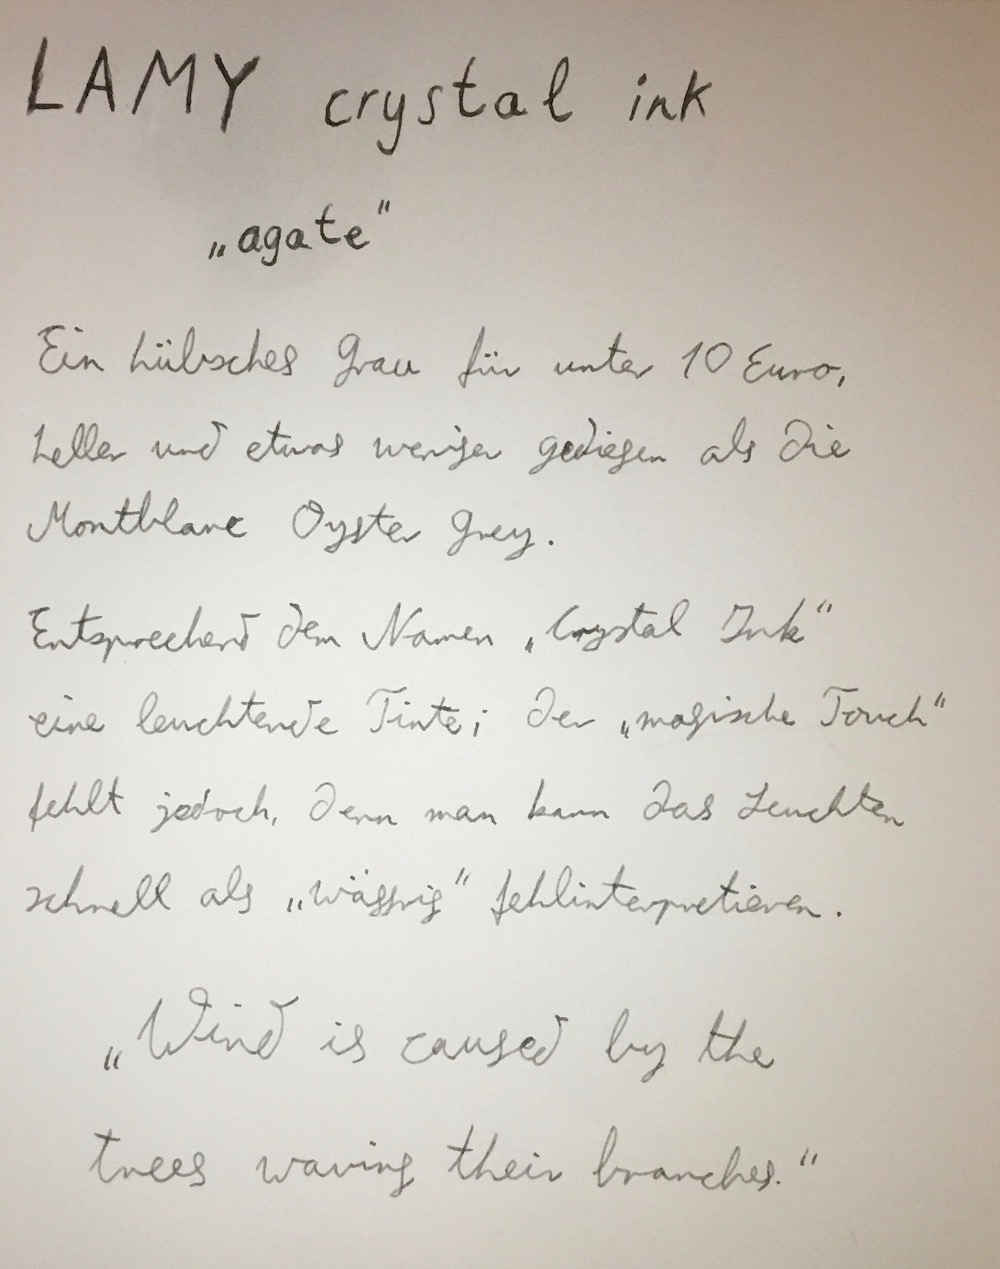 LAMY crystal ink
„agate“
Ein hübsches Grau für unter 10 Euro,
heller und etwas weniger gediegen als die
Montblanc Oyster Grey.
Entsprechend dem Namen „Crystal Ink“
eine leuchtende Tinte; der „magische Touch“
fehlt jedoch, denn man kann das Leuchten
schnell als „wässrig“ fehlinterpretieren.
„Wind is caused by the
trees waving their branches.“